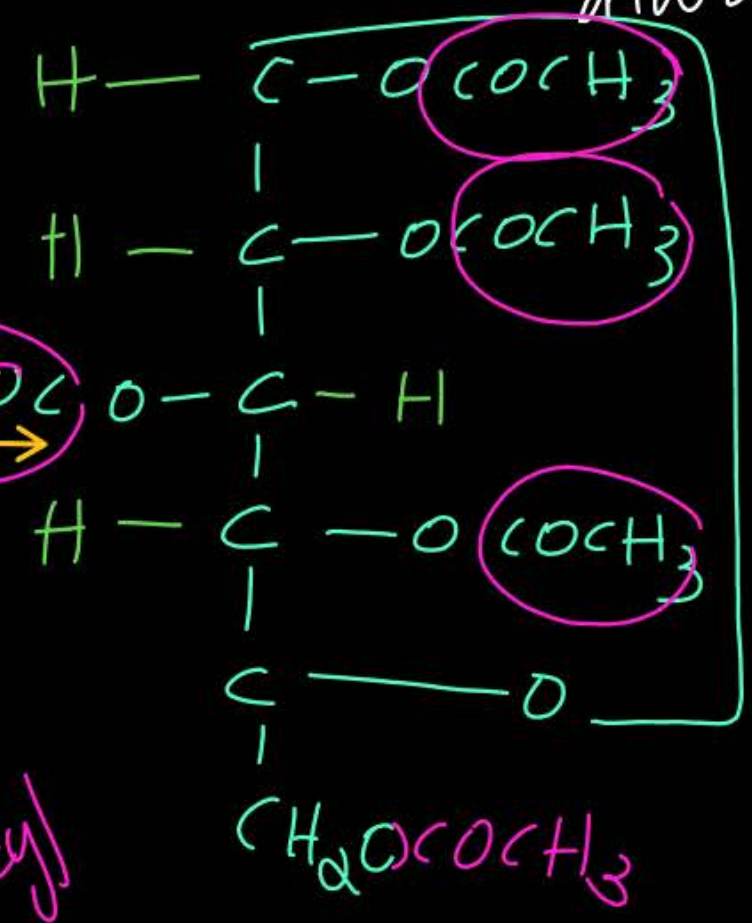 H — C — OCOCH3
|
H — C — OCOCH3
|
OC O — C — H
|
H — C — O COCH3
|
C — O
|
CH2OCOCH3